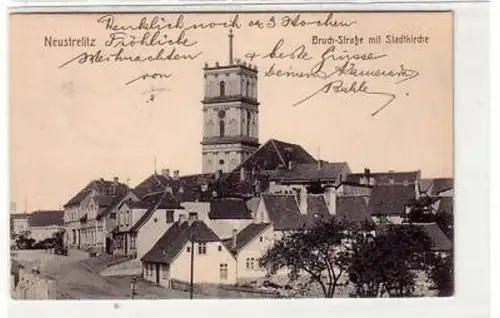 Denklich noch ca 3 Wochen
Neustrelitz
Fröhliche
Weihnachten
von
Bruch-Straße mit Stadtkirche
& beste Grüsse
deinem